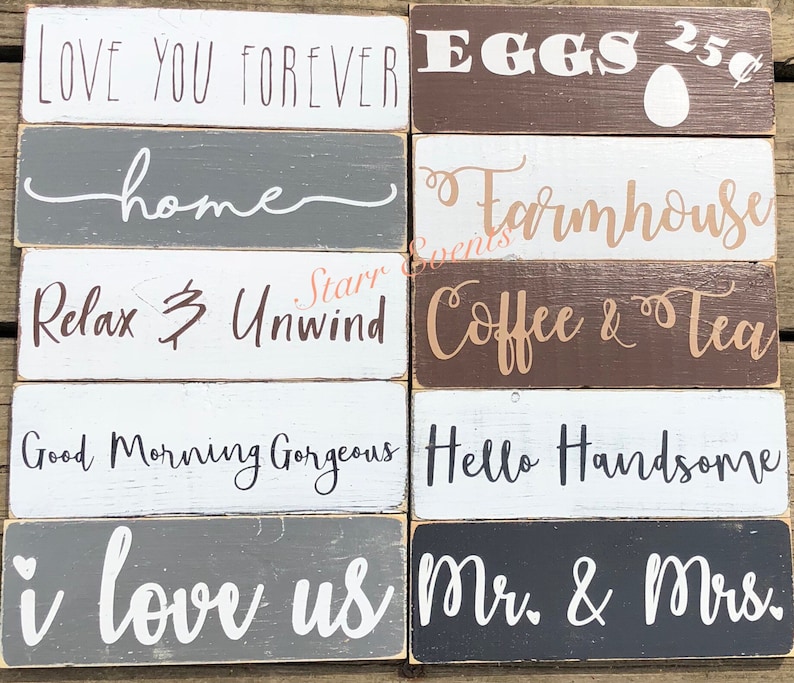 LOVE YOU FOREVER
home
Relax & Unwind
Good Morning Gorgeous
i love us
EGGS 25¢
Farmhouse
Coffee & Tea
Hello Handsome
Mr. & Mrs.
Starr Events